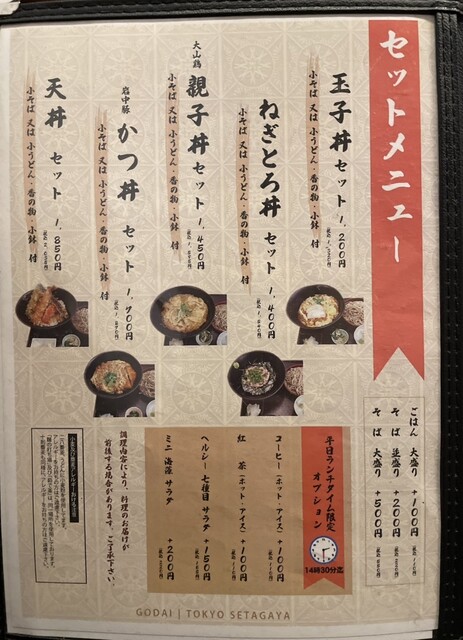 セットメニュー
玉子丼 セット 1,200円
小そば 又は 小うどん・香の物・小鉢 付
ねぎとろ丼 セット 1,400円
小そば 又は 小うどん・香の物・小鉢 付
大山鶏
親子丼 セット 1,450円
小そば 又は 小うどん・香の物・小鉢 付
岩中豚
かつ丼 セット 1,700円
小そば 又は 小うどん・香の物・小鉢 付
天丼 セット 1,850円
小そば 又は 小うどん・香の物・小鉢 付
ごはん 大盛り +100円
そば 並盛り +200円
そば 大盛り +500円
平日ランチタイム限定
オプション
14時30分迄
コーヒー(ホット・アイス) +100円
紅 茶(ホット・アイス) +100円
ヘルシー 七種目 サラダ +150円
ミニ 海藻 サラダ +200円
調理内容により、料理のお届けが
前後する場合があります。ご了承下さい。
GODAI | TOKYO SETAGAYA